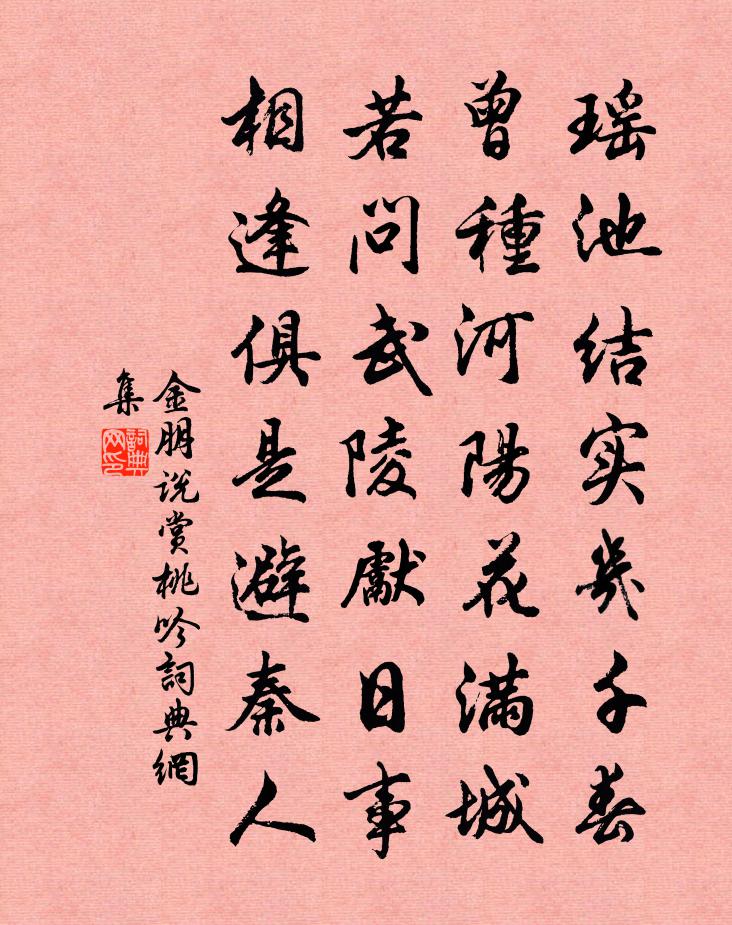 瑶池结实岁千春
曾種河陽花滿城
若问武陵獻日事
相逢俱是避秦人
金朋说赏桃吟詞典網
集
詞典网印